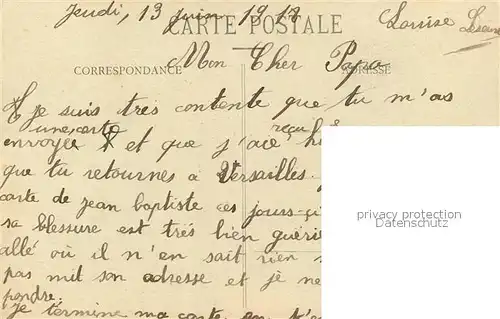 Jeudi, 13 juin 1918 Louise
CARTE POSTALE
Mon Cher Papa
CORRESPONDANCE ADRESSE
je suis très contente que tu m'as
une carte reçu
envoyée et que j'aie
que tu retournes a Versailles
carte de jean baptiste ces jours-ci
sa blessure est très bien guérie
allé où il n'en sait rien
pas mit son adresse et je ne
pondre.
je termine ma carte en
privacy protection
Datenschutz